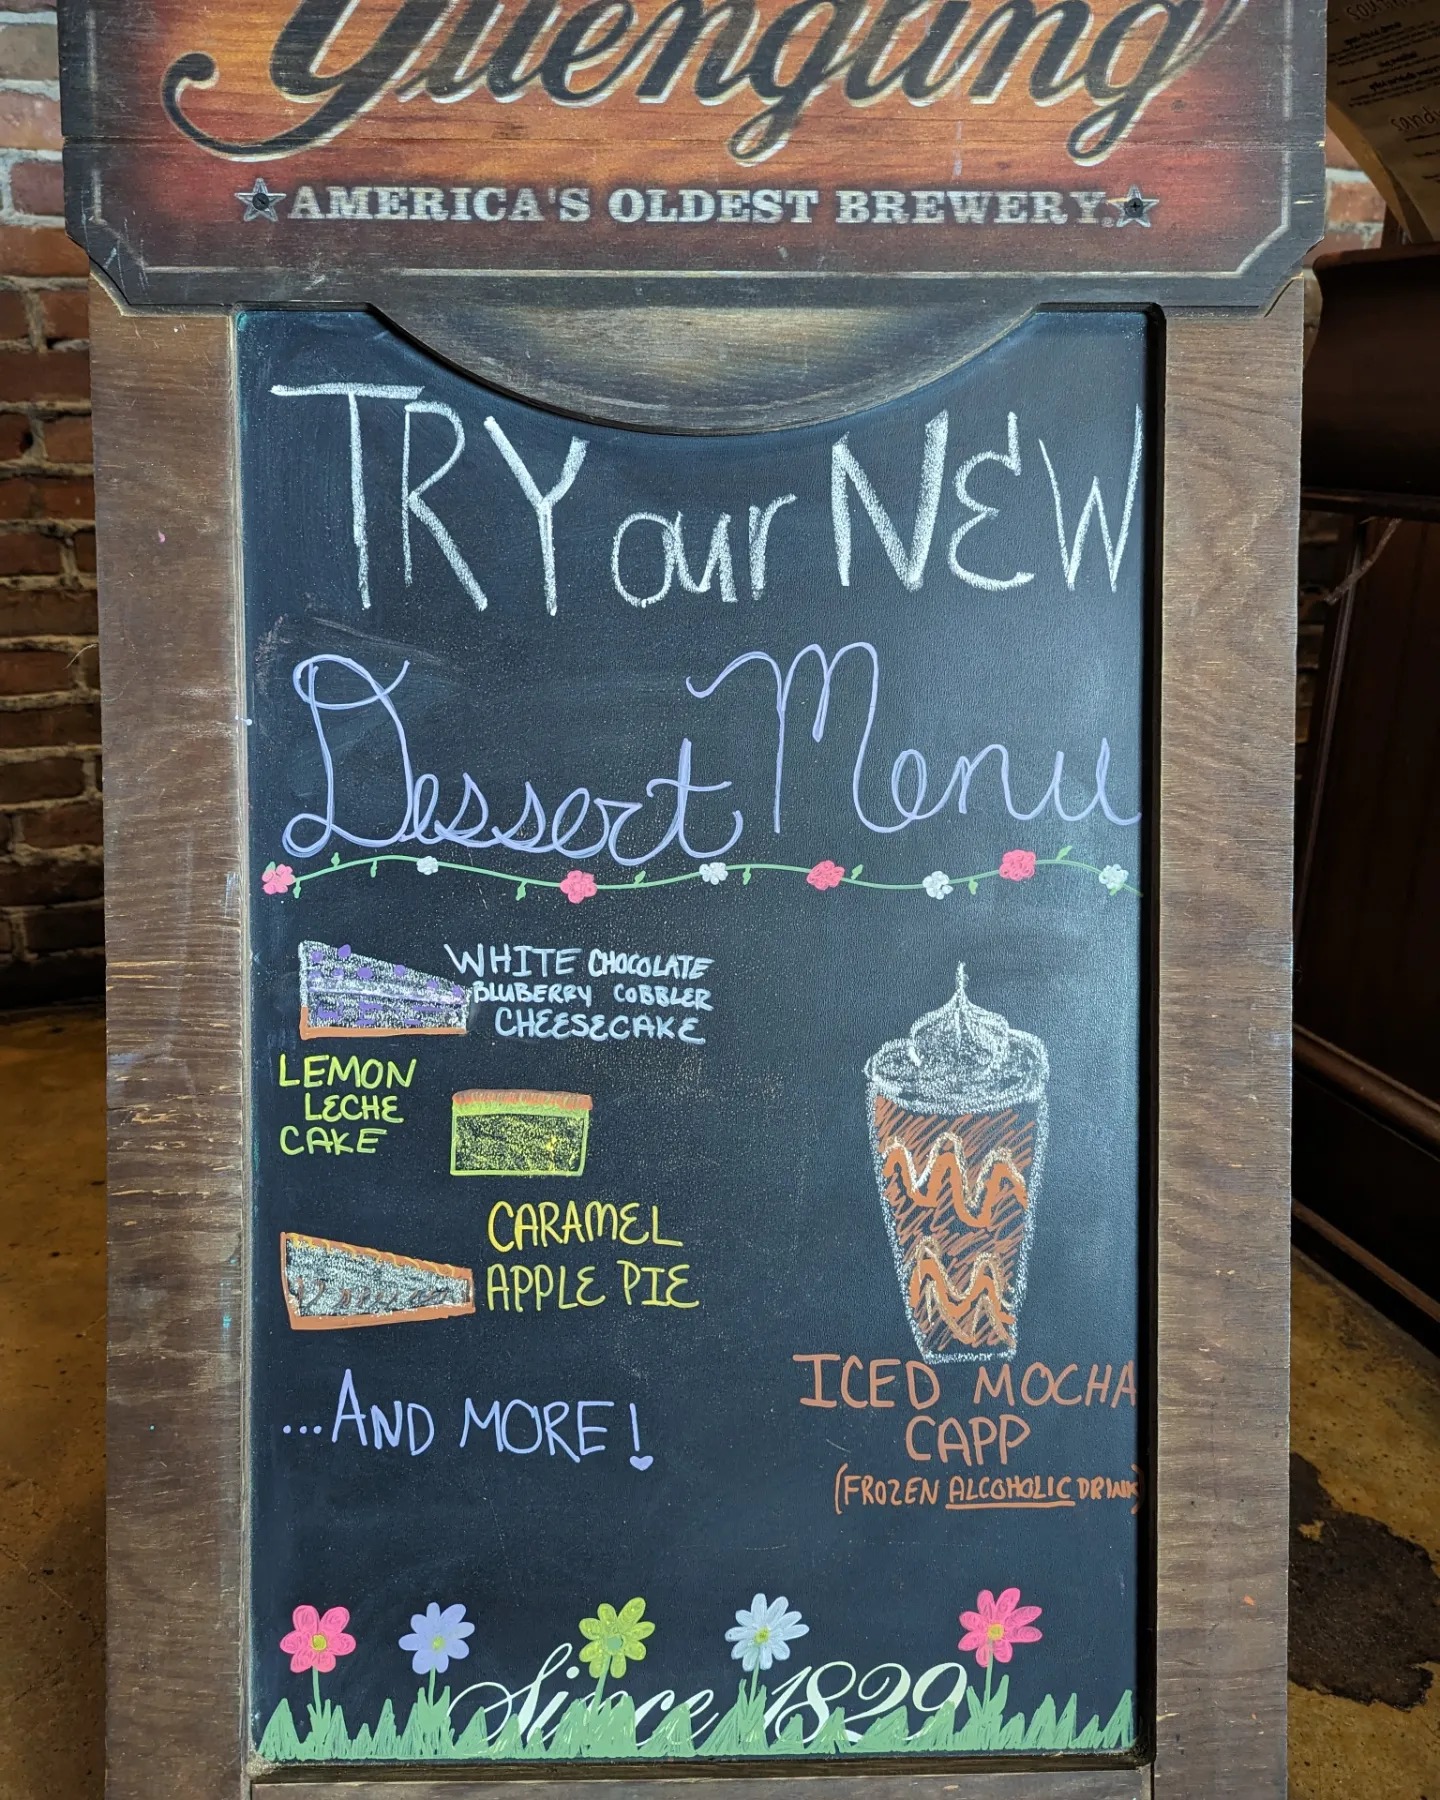 Yuengling
AMERICA'S OLDEST BREWERY.
TRY our NEW
Dessert Menu
WHITE CHOCOLATE
BLUBERRY COBBLER
CHEESECAKE
LEMON
LECHE
CAKE
CARAMEL
APPLE PIE
...AND MORE!
ICED MOCHA
CAPP
(FROZEN ALCOHOLIC DRINK)
Since 1829